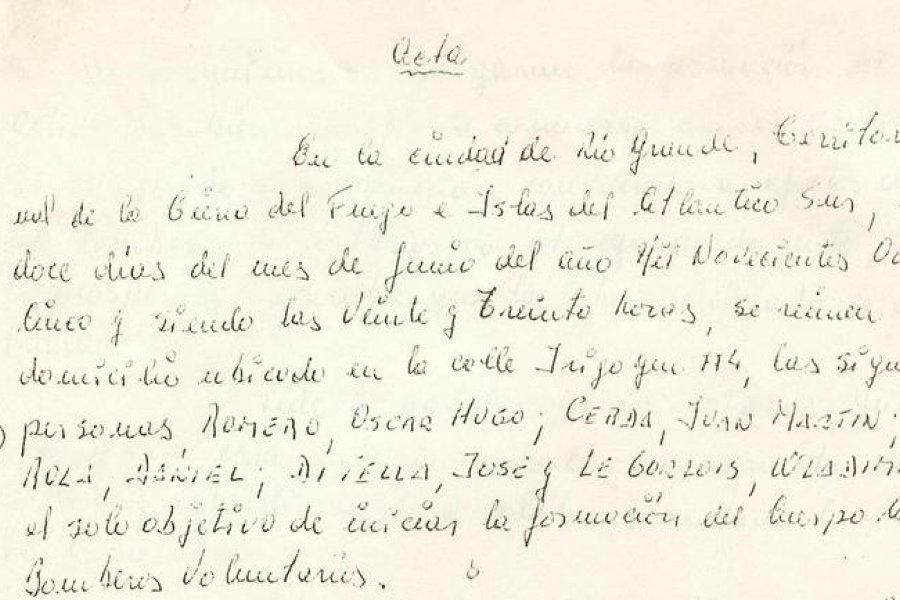 Acta
En la ciudad de Río Grande, Territor
nal de la Tierra del Fuego e Islas del Atlantico Sur,
doce días del mes de Junio del año Mil Novecientos Oc
Cinco y siendo las Veinte y Treinta horas, se reunen
domicilio ubicado en la calle Irigoyen 774, las sigu
personas, ROMERO, OSCAR HUGO; CERDA, JUAN MARTIN;
ROLA, DANIEL; DI TELLA, JOSÉ y LE GORLOIS, WLADIMI
el solo objetivo de iniciar la formación del Cuerpo de
Bomberos Voluntarios.